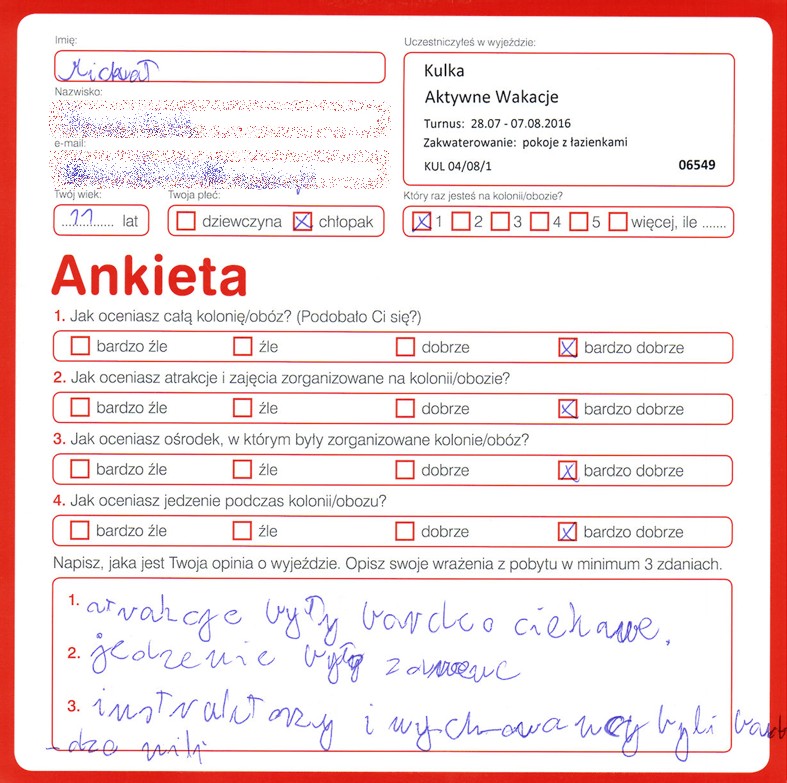 Imię:
Michał
Nazwisko:
e-mail:
Twój wiek:
11 lat
Twoja płeć:
dziewczyna chłopak
Uczestniczyłeś w wyjeździe:
Kulka
Aktywne Wakacje
Turnus: 28.07 - 07.08.2016
Zakwaterowanie: pokoje z łazienkami
KUL 04/08/1 06549
Który raz jesteś na kolonii/obozie?
1 2 3 4 5 więcej, ile .......
Ankieta
1. Jak oceniasz całą kolonię/obóz? (Podobało Ci się?)
bardzo źle źle dobrze bardzo dobrze
2. Jak oceniasz atrakcje i zajęcia zorganizowane na kolonii/obozie?
bardzo źle źle dobrze bardzo dobrze
3. Jak oceniasz ośrodek, w którym były zorganizowane kolonie/obóz?
bardzo źle źle dobrze bardzo dobrze
4. Jak oceniasz jedzenie podczas kolonii/obozu?
bardzo źle źle dobrze bardzo dobrze
Napisz, jaka jest Twoja opinia o wyjeździe. Opisz swoje wrażenia z pobytu w minimum 3 zdaniach.
1. atrakcje były bardzo ciekawe.
2. jedzenie było
3. instruktorzy i wychowawcy byli bar
-dzo mili